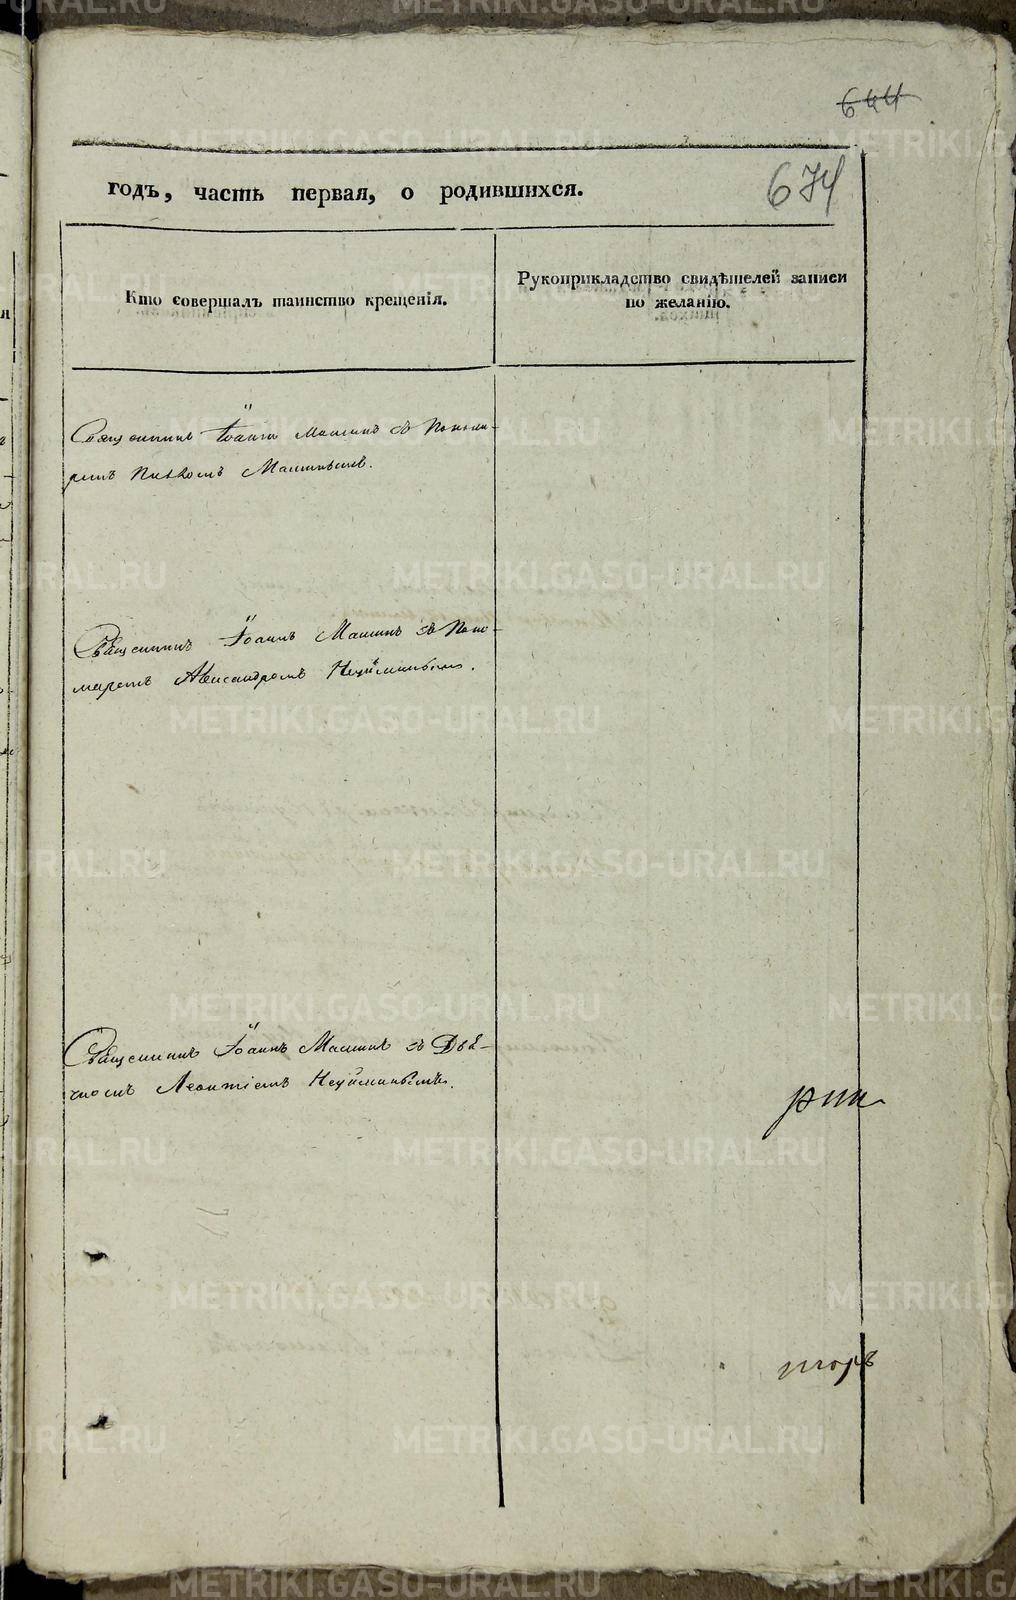 644
674
годъ, часть первая, о родившихся.
Кто совершалъ таинство крещенія.
Рукоприкладство свидѣтелей записи по желанію.
Священникъ Іоаннъ Маминъ съ Понома-
ремъ Маминымъ.
Священникъ Іоаннъ Маминъ съ Поно-
маремъ Александромъ
Священникъ Іоаннъ Маминъ съ Дья-
чкомъ Леонтіемъ
METRIKI.GASO-URAL.RU